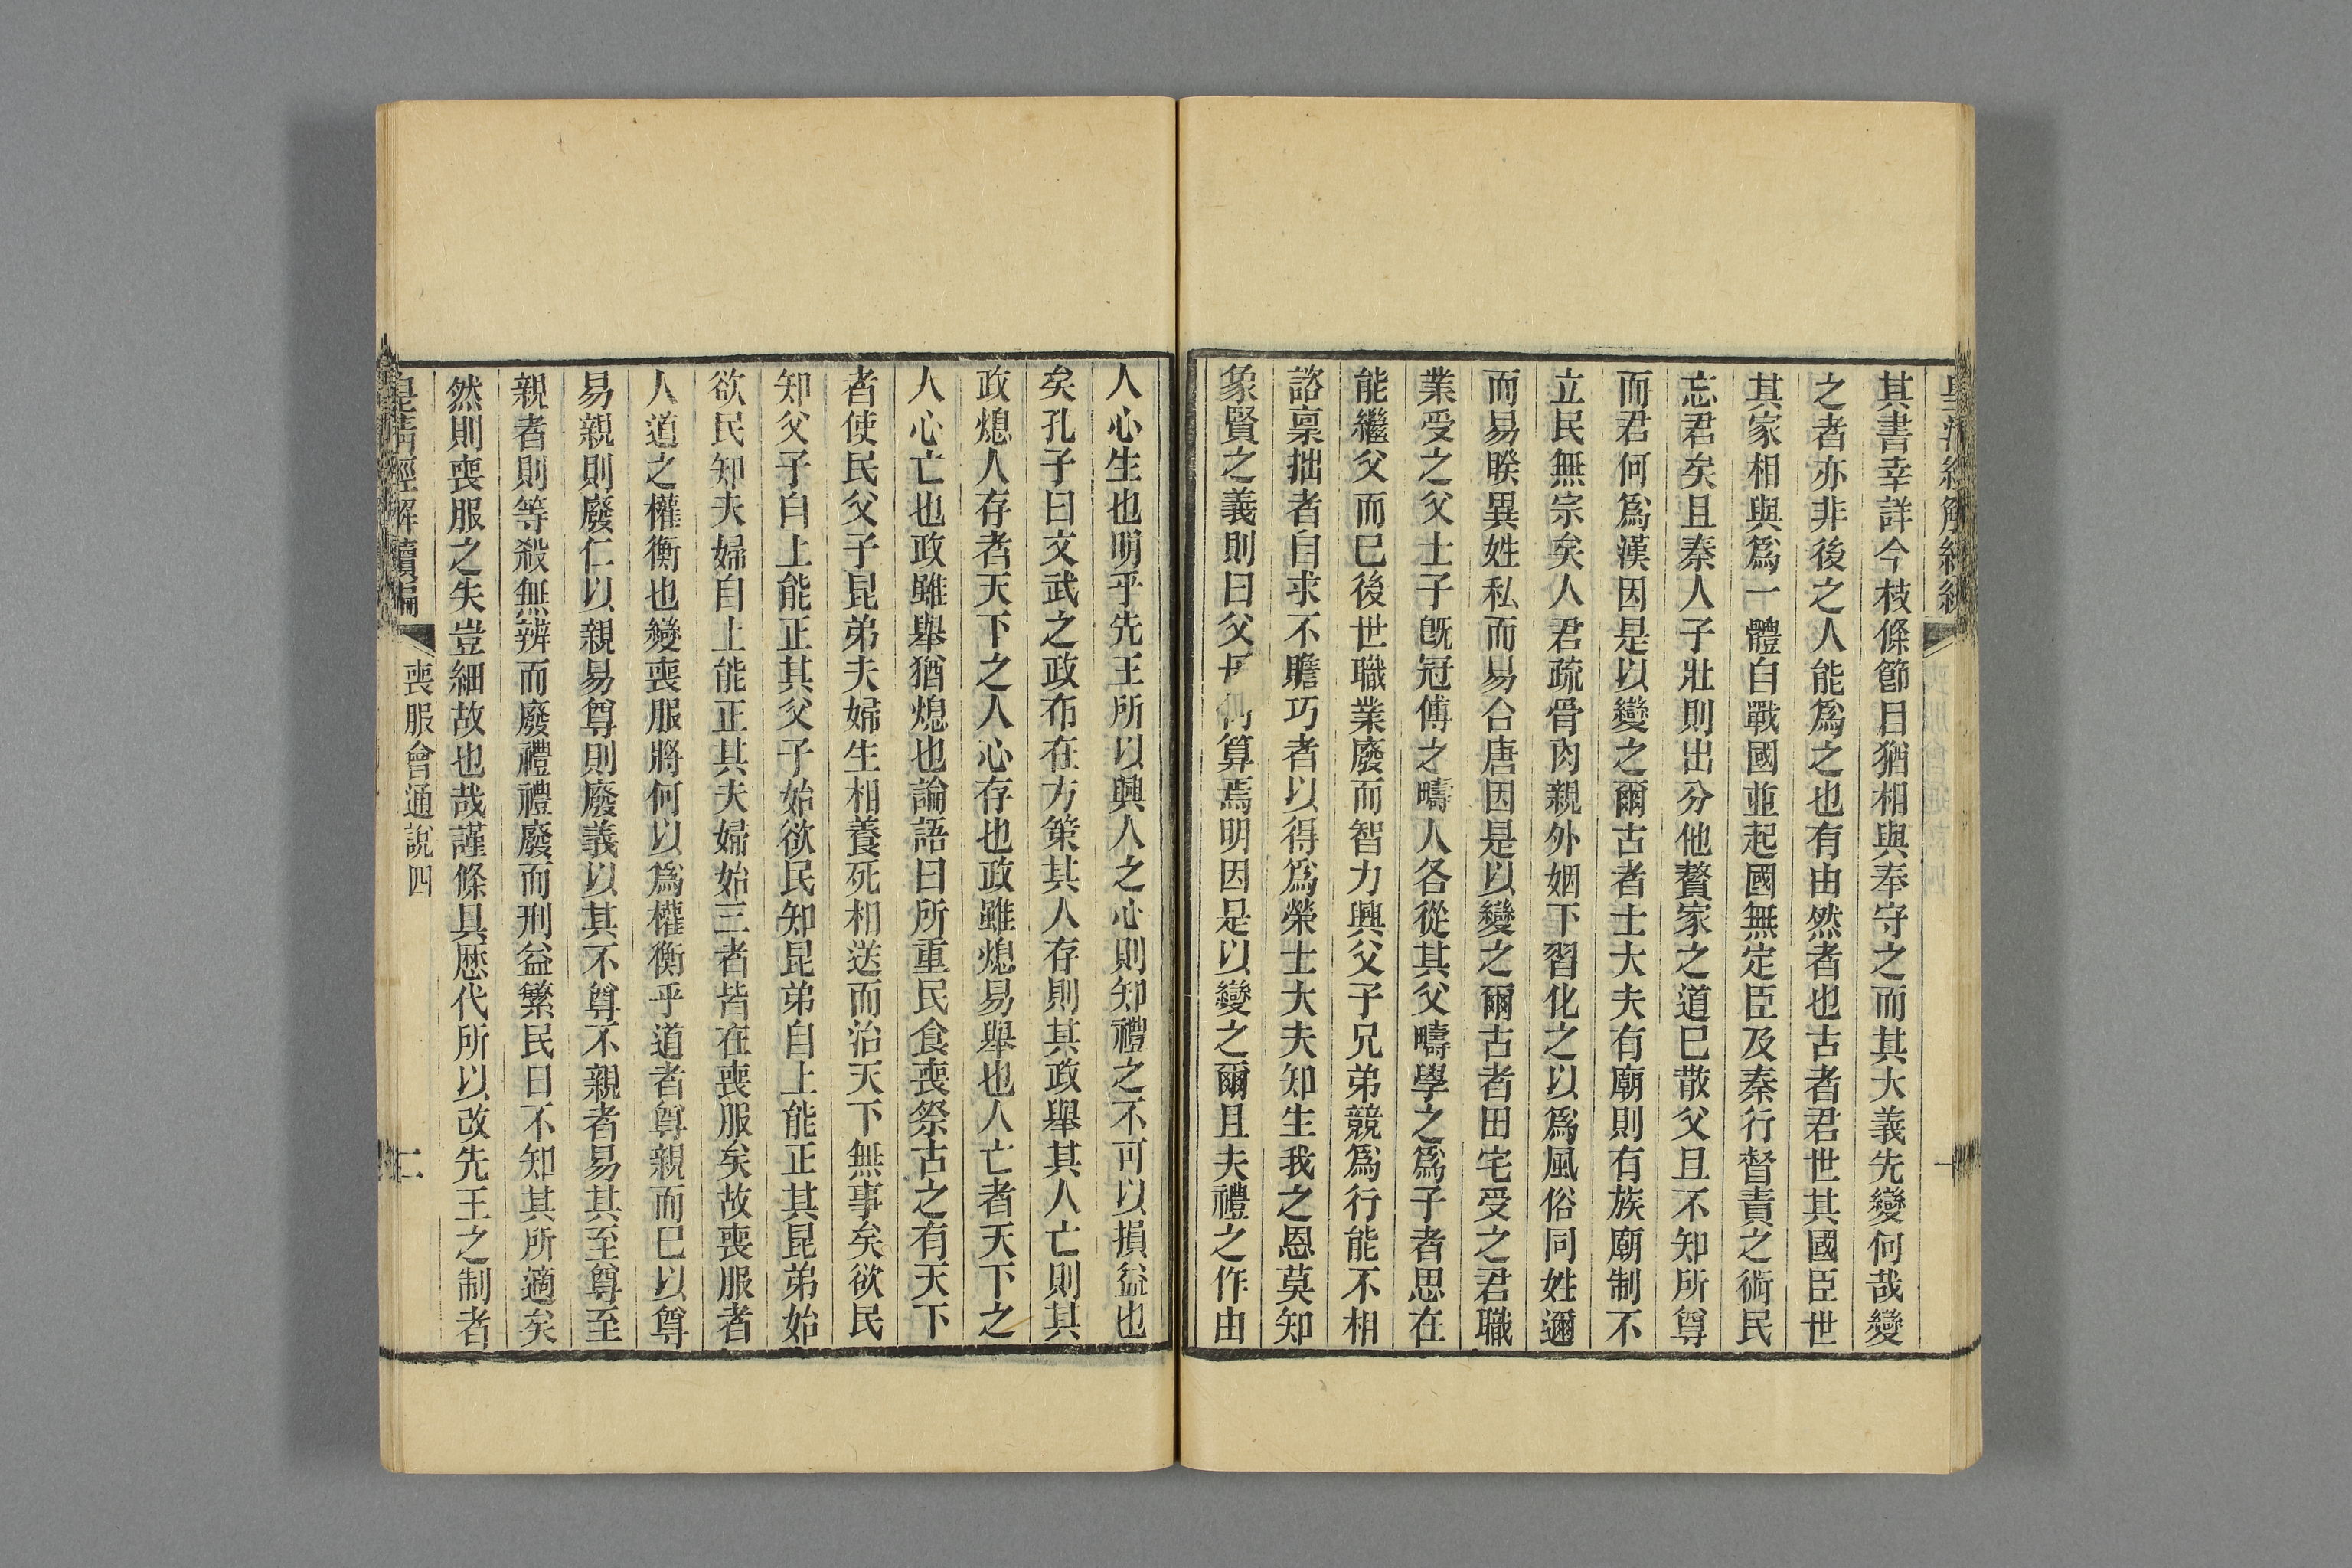 其書幸詳今枝條節目猶相與奉守之而其大義先變何哉變
之者亦非後之人能爲之也有由然者也古者君世其國臣世
其家相與爲一體自戰國並起國無定臣及秦行督責之術民
忘君矣且秦人子壯則出分他贅家之道已散父且不知所尊
而君何爲漢因是以變之爾古者士大夫有廟則有族廟制不
立民無宗矣人君疏骨肉親外姻下習化之以爲風俗同姓邇
而易睽異姓私而易合唐因是以變之爾古者田宅受之君職
業受之父士子旣冠傅之疇人各從其父疇學之爲子者思在
能繼父而已後世職業廢而智力興父子兄弟競爲行能不相
諮稟拙者自求不贍巧者以得爲榮士大夫知生我之恩莫知
象賢之義則曰父母何算焉明因是以變之爾且夫禮之作由
人心生也明乎先王所以興人之心則知禮之不可以損益也
矣孔子曰文武之政布在方策其人存則其政舉其人亡則其
政熄人存者天下之人心存也政雖熄易舉也人亡者天下之
人心亡也政雖舉猶熄也論語曰所重民食喪祭古之有天下
者使民父子昆弟夫婦生相養死相送而治天下無事矣欲民
知父子自上能正其父子始欲民知昆弟自上能正其昆弟始
欲民知夫婦自上能正其夫婦始三者皆在喪服矣故喪服者
人道之權衡也變喪服將何以爲權衡乎道者尊親而已以尊
易親則廢仁以親易尊則廢義以其不尊不親者易其至尊至
親者則等殺無辨而廢禮禮廢而刑益繁民日不知其所適矣
然則喪服之失豈細故也哉謹條具歷代所以改先王之制者
皇清經解續編
喪服會通說四
二